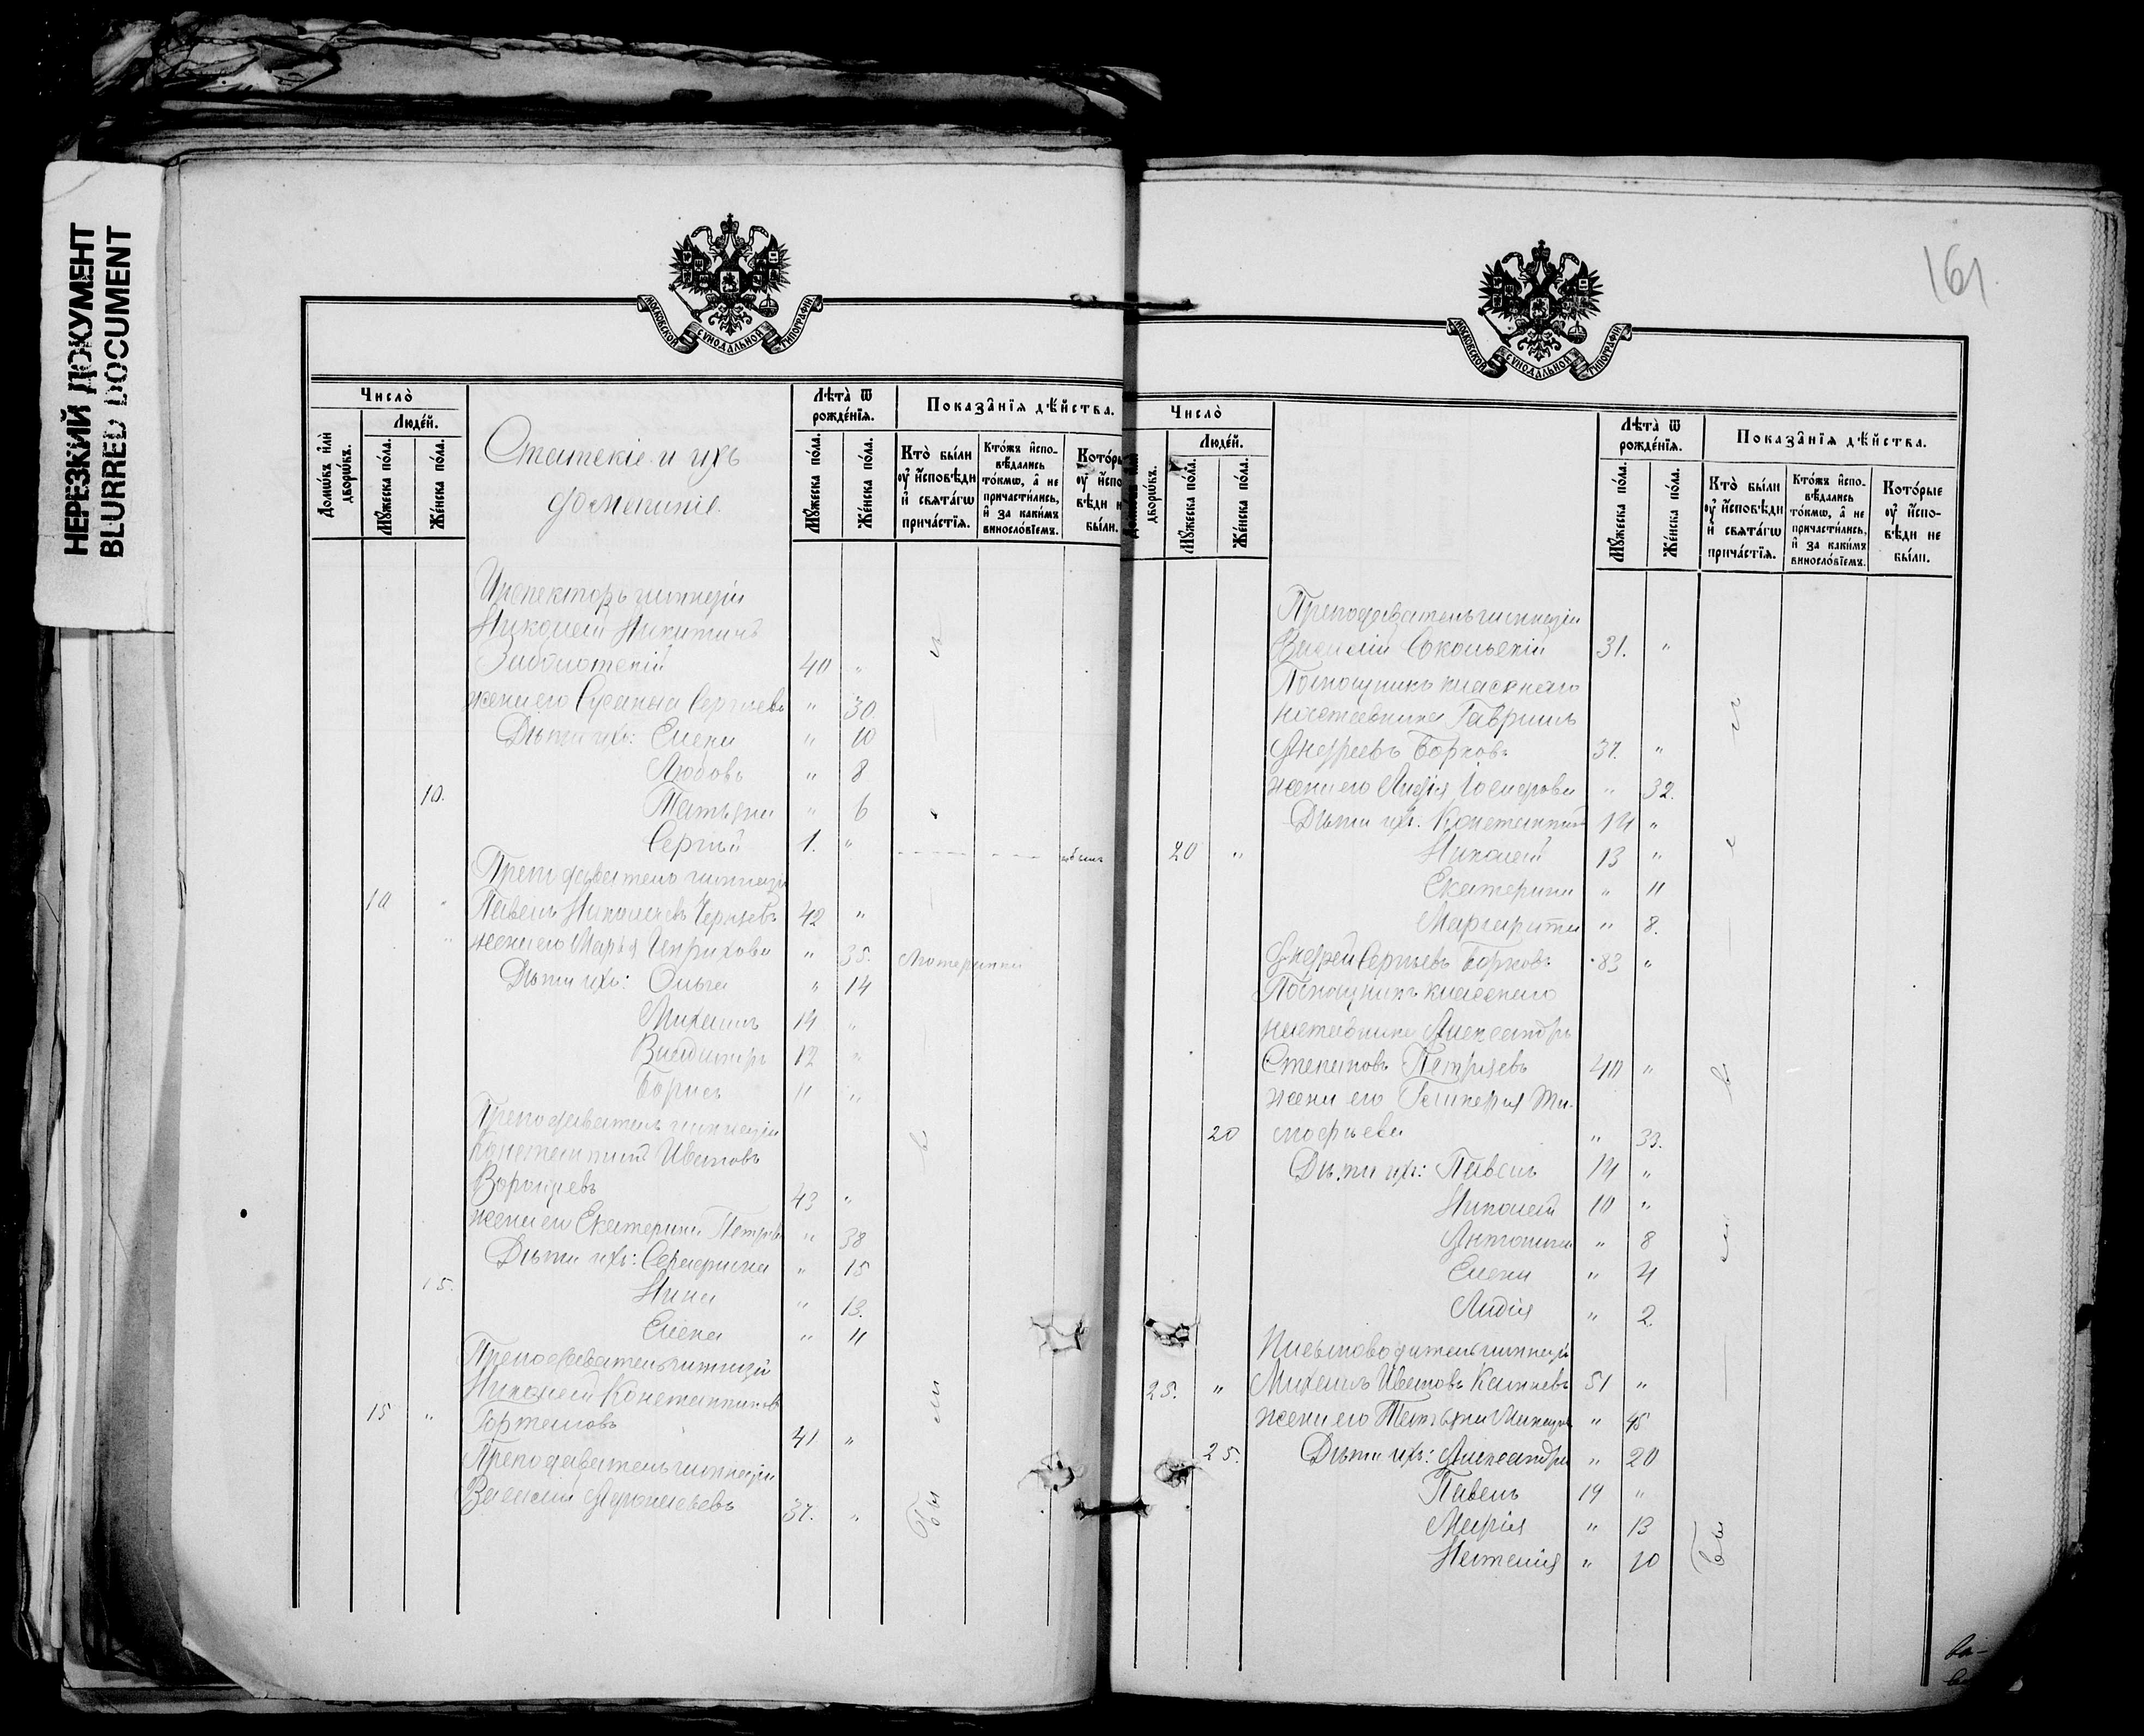 НЕРЕЗКИЙ ДОКУМЕНТ
BLURRED DOCUMENT
МОСКОВСКОЙ СѴНОДАЛЬНОЙ ТИПОГРАФІИ
Число̀
Домѡ́въ и҆лѝ дворѡ́въ.
Люде́й.
Мꙋ́жеска по́ла.
Же́нска по́ла.
Статскіе и ихъ
домашніе.
Лѣ́та ѿ рожде́нїѧ.
Мꙋ́жеска по́ла.
Же́нска по́ла.
Показа̑нїѧ дѣ́йства.
Кто̀ бы́ли ᲂу҆ и҆сповѣ́ди и҆ свѧта́гѡ прича́стїѧ.
Кто́жъ и҆сповѣ́дались то́кмѡ, а҆ не причасти́лись, и҆ за каки́мъ винословїемъ.
Инспекторъ гимназіи
Николай Никитичъ
Заболотскій 40 "
жена его Сусанна Сергѣева " 30
Дѣти ихъ: Елена " 10
Любовь " 8
10. Татьяна " 6
Сергѣй 1. "
Преподаватель гимназіи
10 " Павелъ Николаевъ Черняевъ 42 "
жена его Марья Генрихова " 35. Лютеранка
Дѣти ихъ: Ольга " 14
Михаилъ 14 "
Владиміръ 12 "
Борисъ 11 "
Преподаватель гимназіи
Константинъ Ивановъ
Воронцевъ 43 "
жена его Екатерина Петрова " 38
Дѣти ихъ: Серафима " 15
15. Нина " 13.
Елена " 11
Преподаватель гимназіи
Николай Константиновъ
15 " Горталовъ 41 "
Преподаватель гимназіи
Василій Афонасьевъ 37. "
161
МОСКОВСКОЙ СѴНОДАЛЬНОЙ ТИПОГРАФІИ
Число̀
дворѡ́въ.
Люде́й.
Мꙋ́жеска по́ла.
Же́нска по́ла.
Лѣ́та ѿ рожде́нїѧ.
Мꙋ́жеска по́ла.
Же́нска по́ла.
Показа̑нїѧ дѣ́йства.
Кто̀ бы́ли ᲂу҆ и҆сповѣ́ди и҆ свѧта́гѡ прича́стїѧ.
Кто́жъ и҆сповѣ́дались то́кмѡ, а҆ не причасти́лись, и҆ за каки́мъ винословїемъ.
Кото́рые ᲂу҆ и҆сповѣ́ди не бы́ли.
Преподаватель гимназіи
Василій Сокольскій 31. "
Помощникъ класснаго
наставника Гавріилъ
Андреевъ Борковъ 37. "
жена его Лидія " 32.
Дѣти ихъ: Константинъ 14 "
20 " Николай 13 "
Екатерина " 11
Маргарита " 8.
Андрей Сергѣевъ Борковъ 83 "
Помощникъ класснаго
наставника Александръ
Степановъ Петряевъ 40 "
жена его Гликерія Ти-
20 мофѣева " 33.
Дѣти ихъ: Павелъ 14 "
Николай 10 "
Антонина " 8
Елена " 4
Лидія " 2.
Письмоводитель гимназіи
25. " Михаилъ Ивановъ 51 "
жена его Татьяна " 45
25. Дѣти ихъ: Александра " 20
Павелъ 19 "
Марія " 13
Наталія " 10